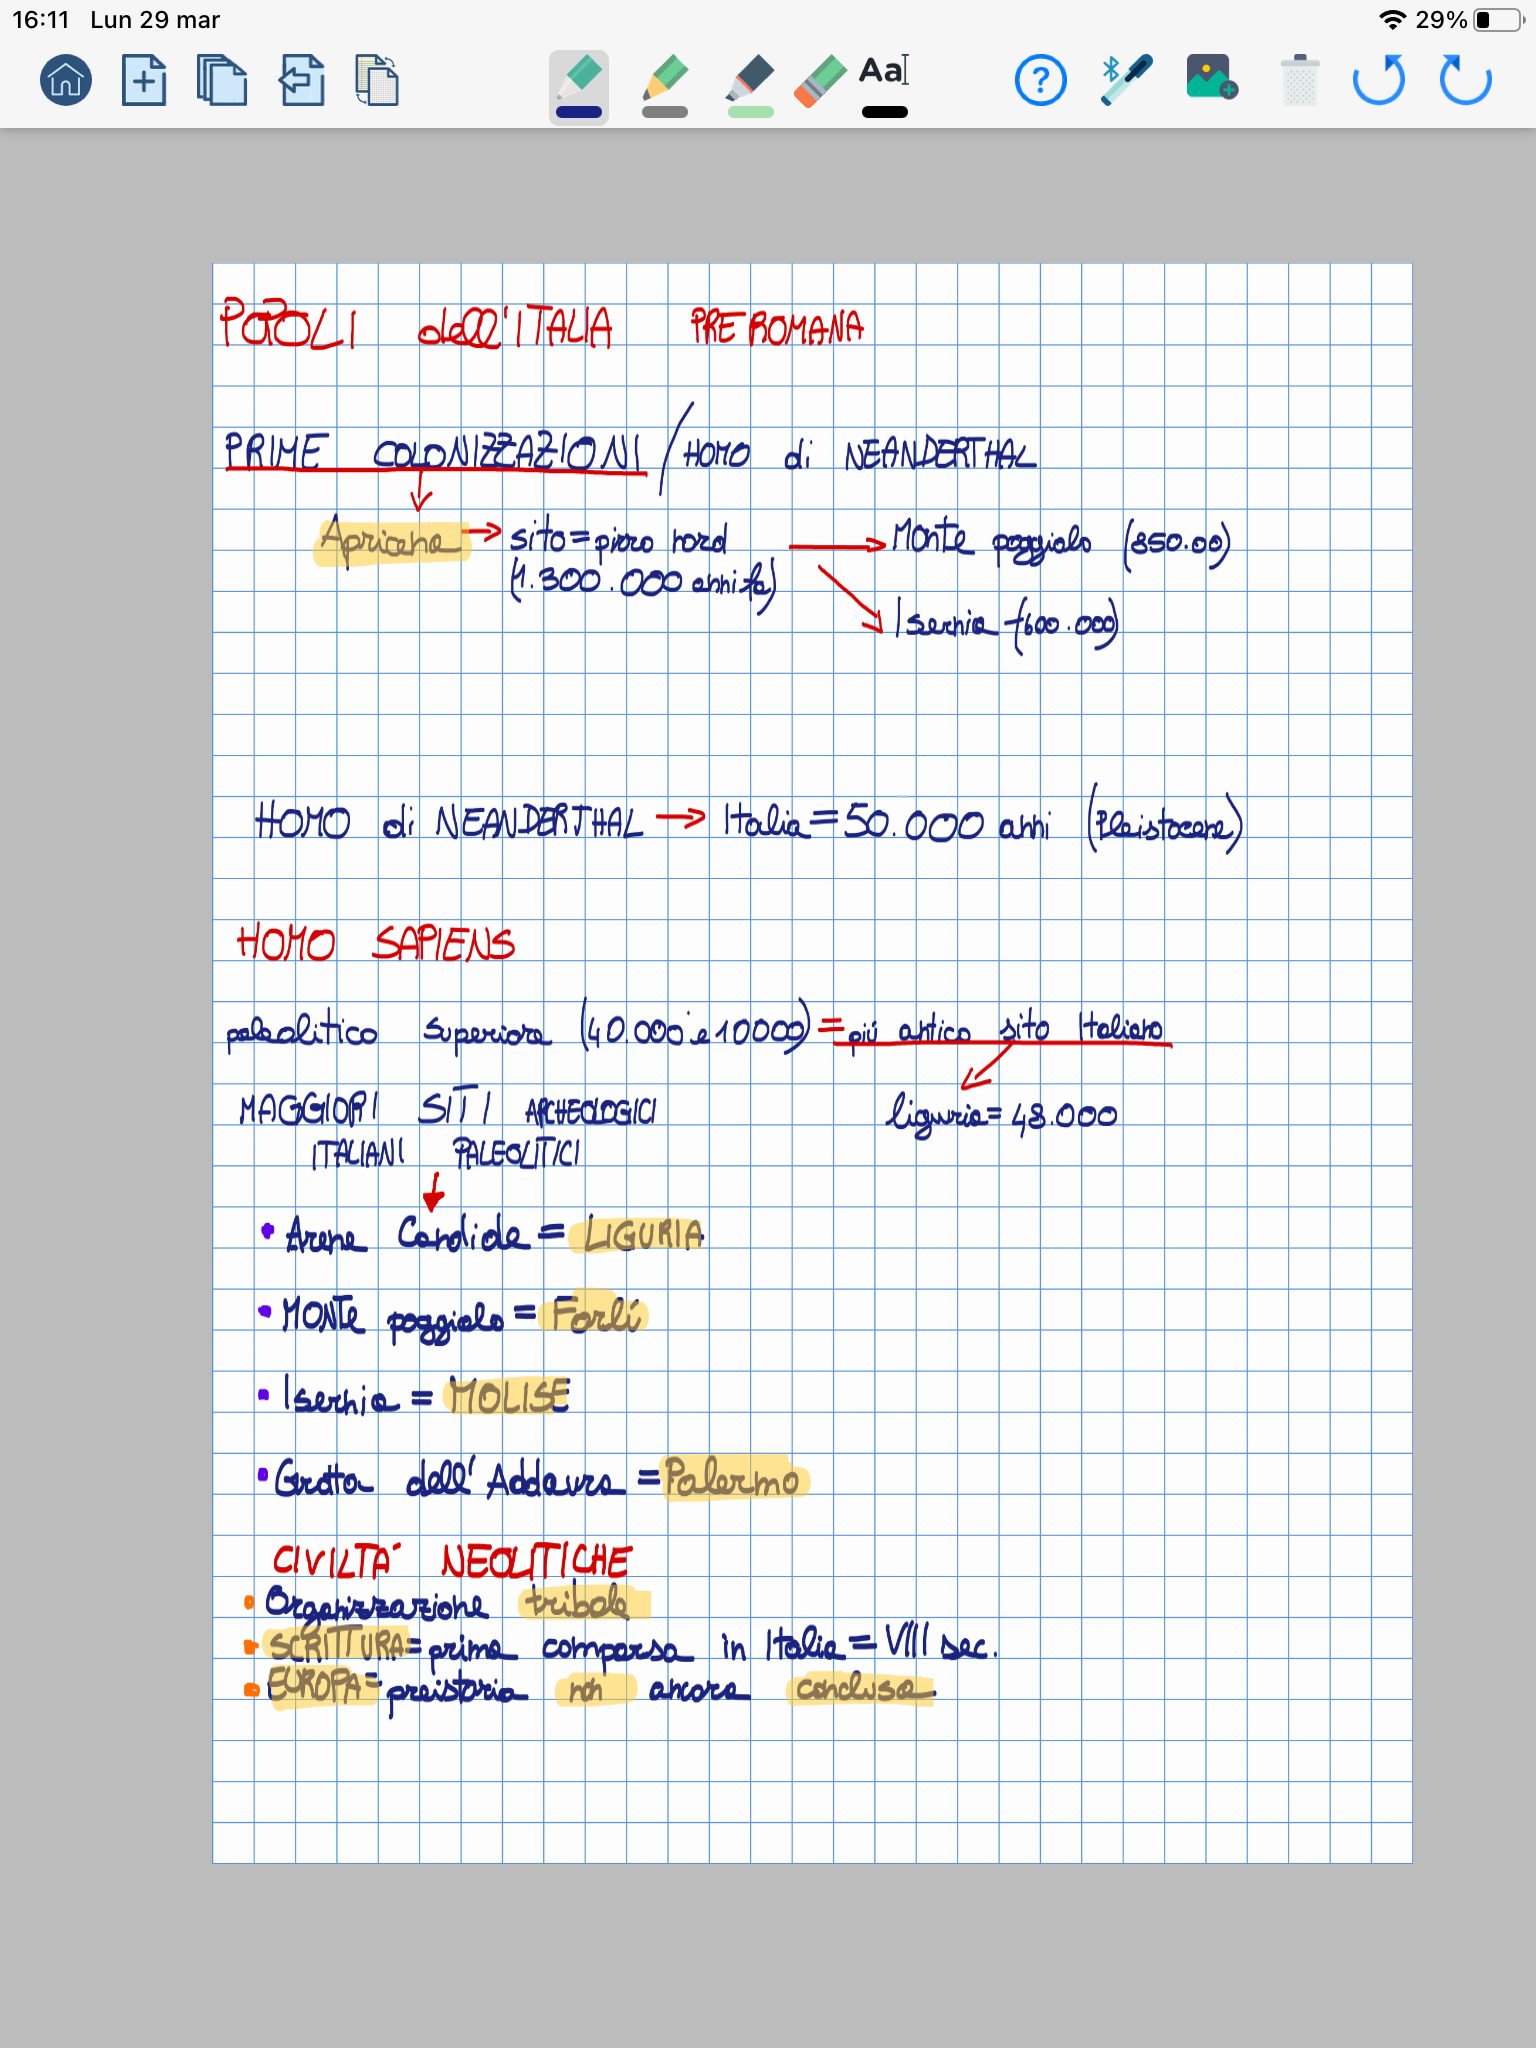 16:11 Lun 29 mar 29%
Aa
?
POPOLI dell'ITALIA PREROMANA
PRIME COLONIZZAZIONI / HOMO di NEANDERTHAL
Apricena → sito=pirro nord → Monte poggiolo (850.00)
(1.300.000 anni fa)
Isernia (600.000)
HOMO di NEANDERTHAL → Italia=50.000 anni (Pleistocene)
HOMO SAPIENS
paleolitico superiore (40.000 e 10000) = più antico sito Italiano
MAGGIORI SITI ARCHEOLOGICI liguria= 48.000
ITALIANI PALEOLITICI
• Arene Candide = LIGURIA
• MONTe poggiolo = Forlí
• Isernia = MOLISE
• Grotta dell'Addaura = Palermo
CIVILTA' NEOLITICHE
• Organizzazione tribale
• SCRITTURA= prima comparsa in Italia = VIII sec.
• EUROPA= preistoria non ancora conclusa